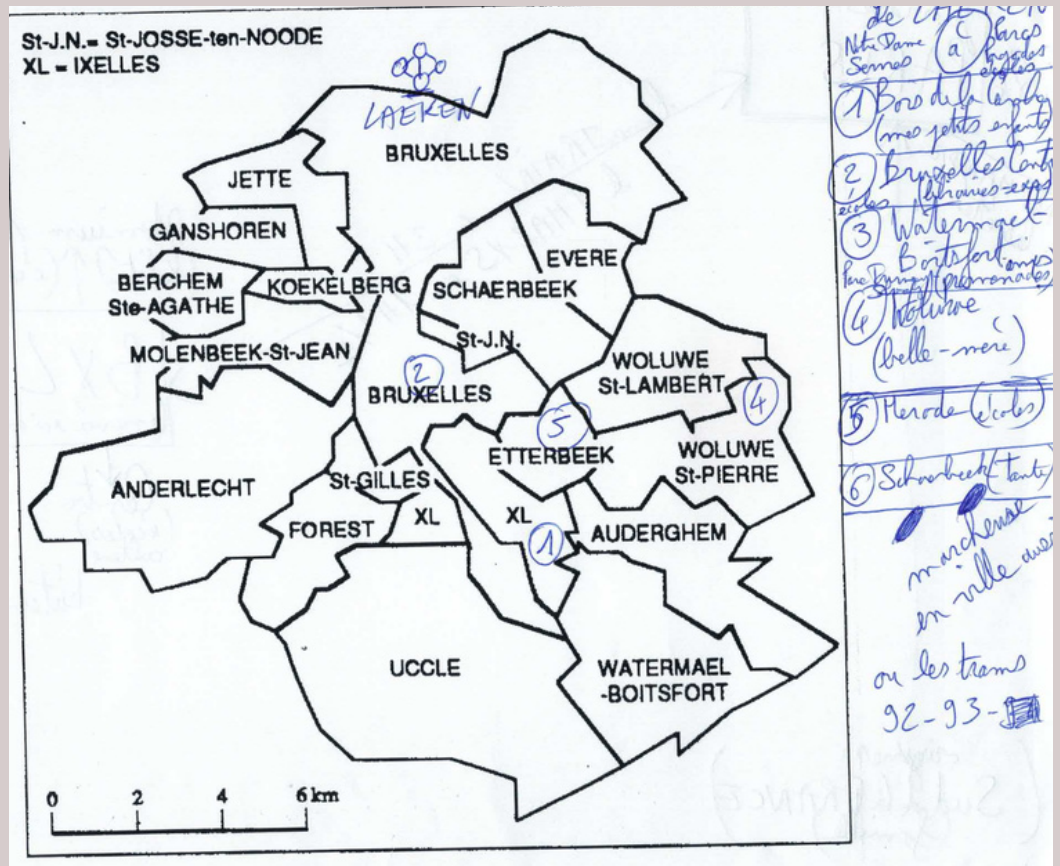 St-J.N.= St-JOSSE-ten-NOODE
XL = IXELLES
LAEKEN
BRUXELLES
JETTE
GANSHOREN
BERCHEM
Ste-AGATHE
KOEKELBERG
EVERE
SCHAERBEEK
St-J.N.
MOLENBEEK-St-JEAN
2
BRUXELLES
WOLUWE
St-LAMBERT
4
5
ETTERBEEK
WOLUWE
St-PIERRE
ANDERLECHT
St-GILLES
FOREST
XL
XL
1
AUDERGHEM
UCCLE
WATERMAEL
-BOITSFORT
0 2 4 6 km
de LAEKEN
Notre Dame
à
parcs
pagodes
écoles
1 de la
(mes petits enfants)
2 Bruxelles
écoles (librairies-expos
3 Watermael-
Boitsfort
promenades)
4 Woluwe
(belle-mère)
5 Merode (écoles)
6 Schaerbeek (tante)
marcheuse
en ville avec
ou les trams
92-93-